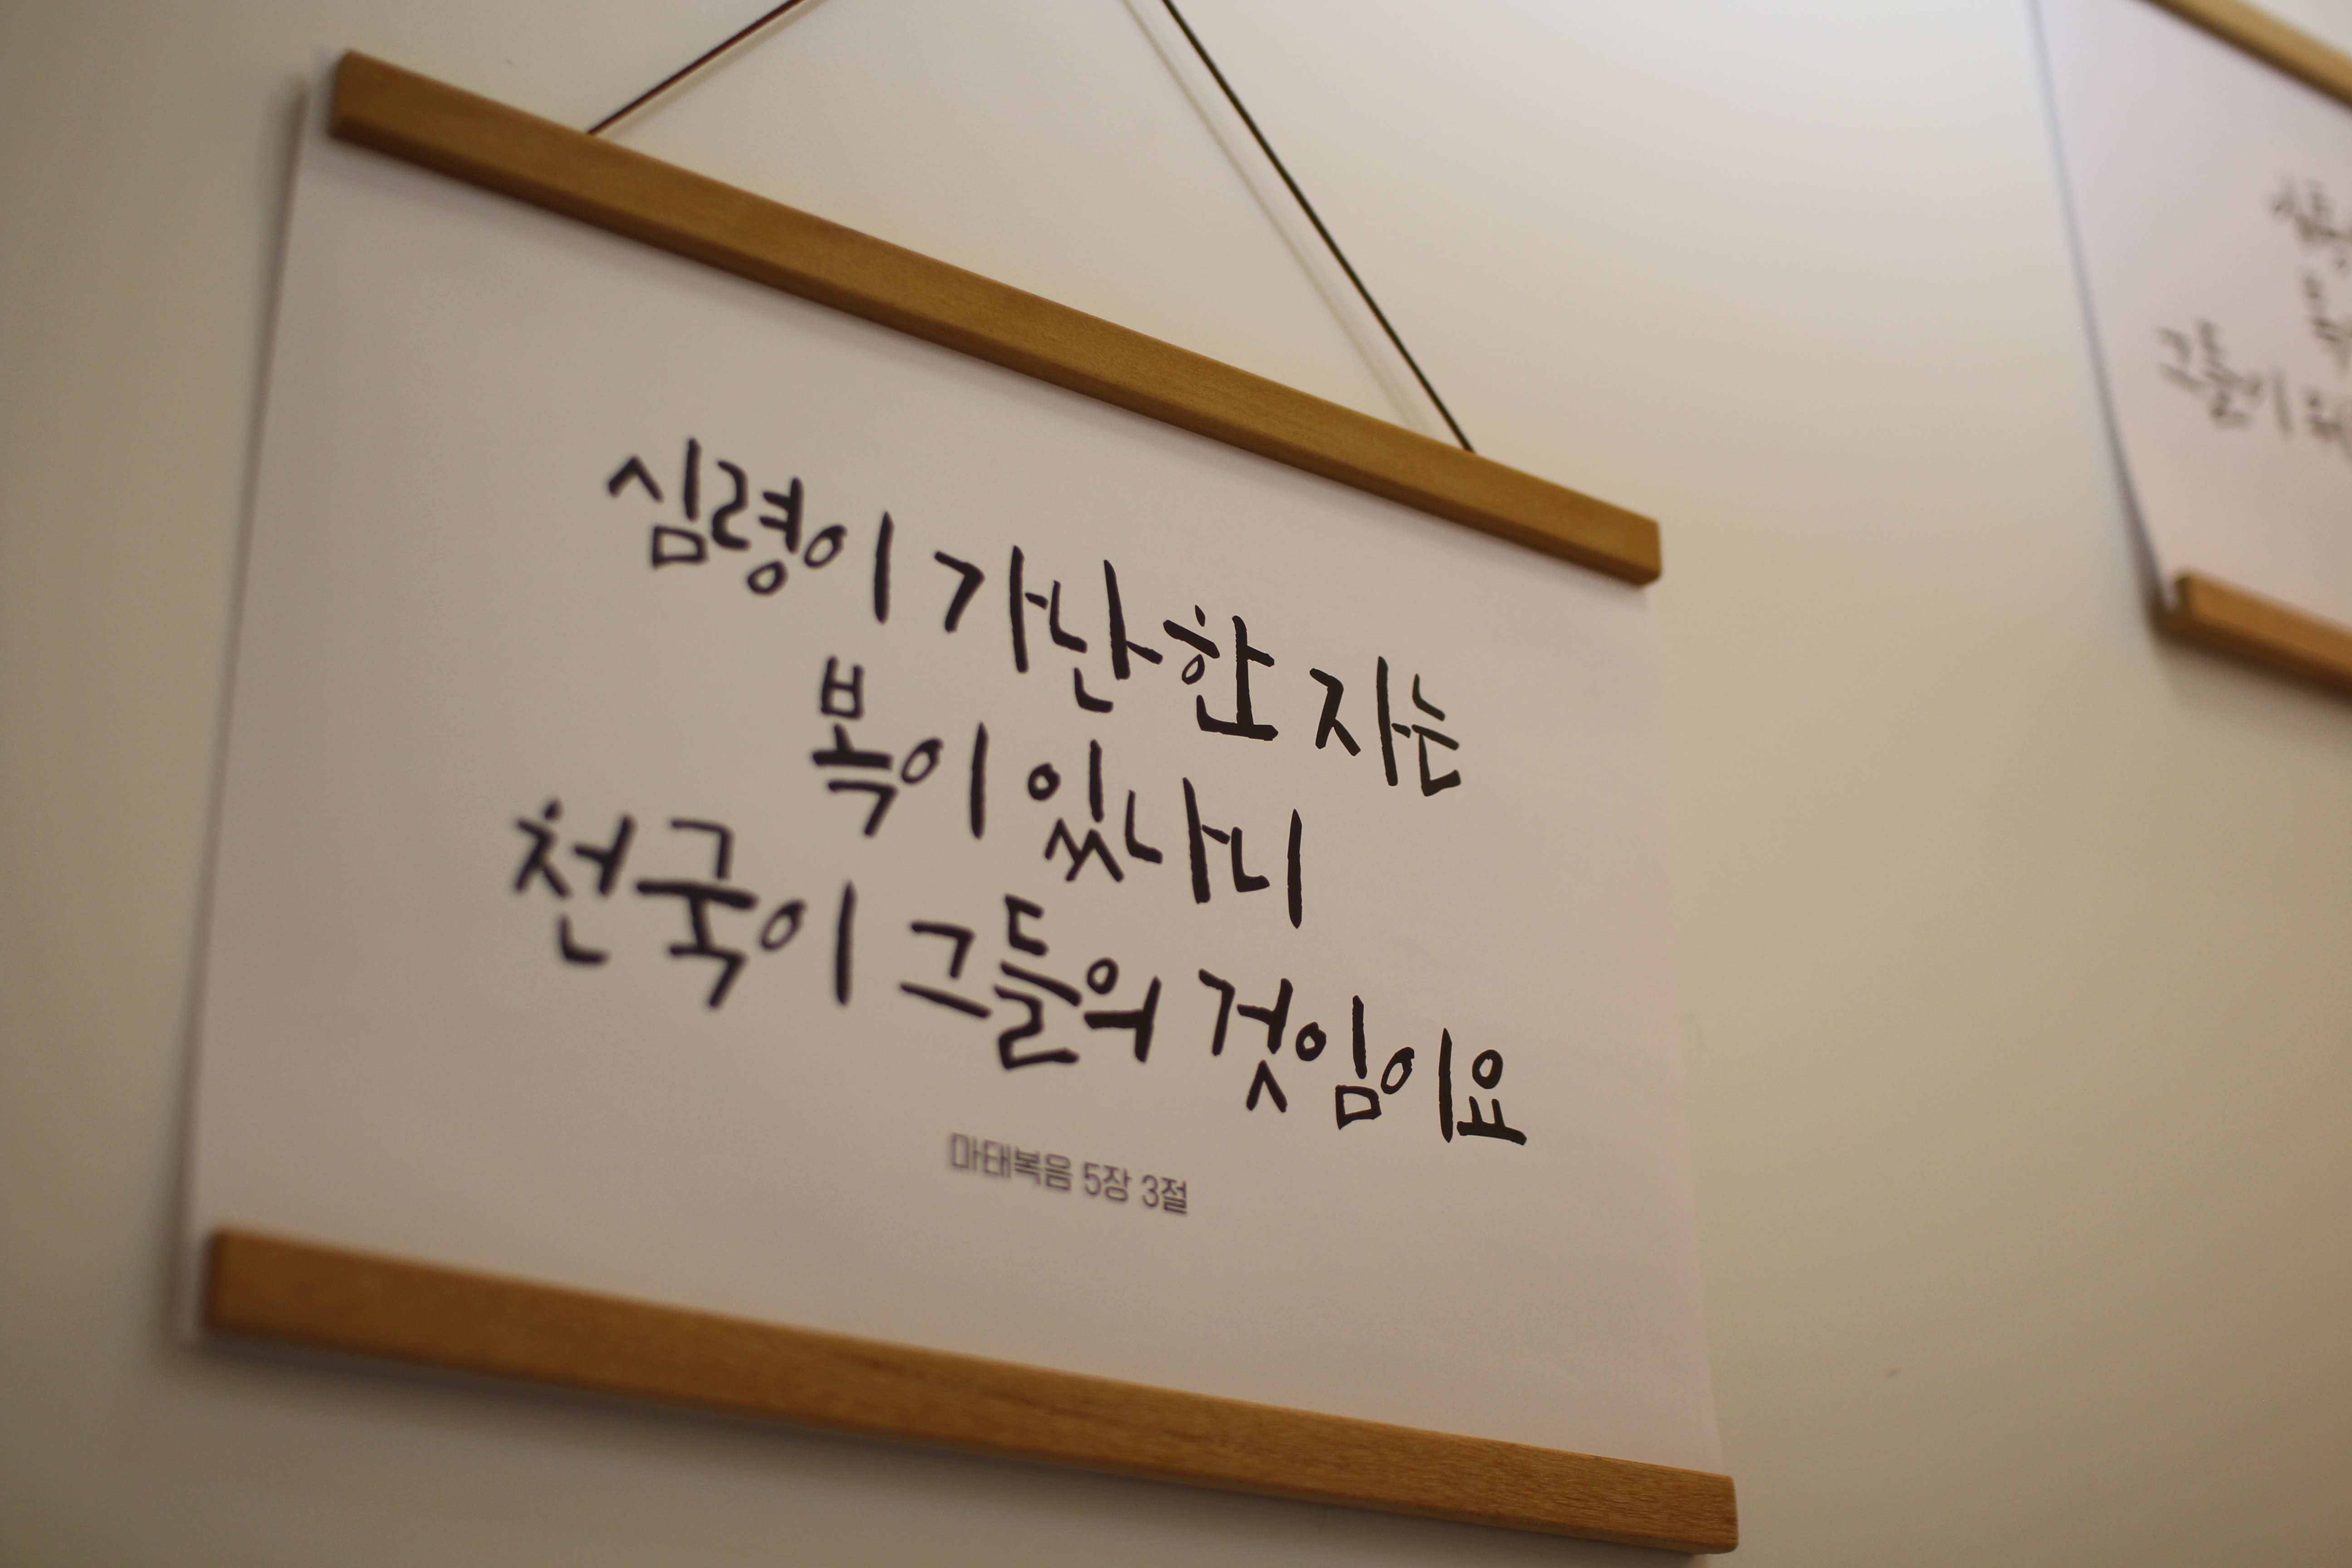 심령이 가난한 자는
복이 있나니
천국이 그들의 것임이요
마태복음 5장 3절
그들이